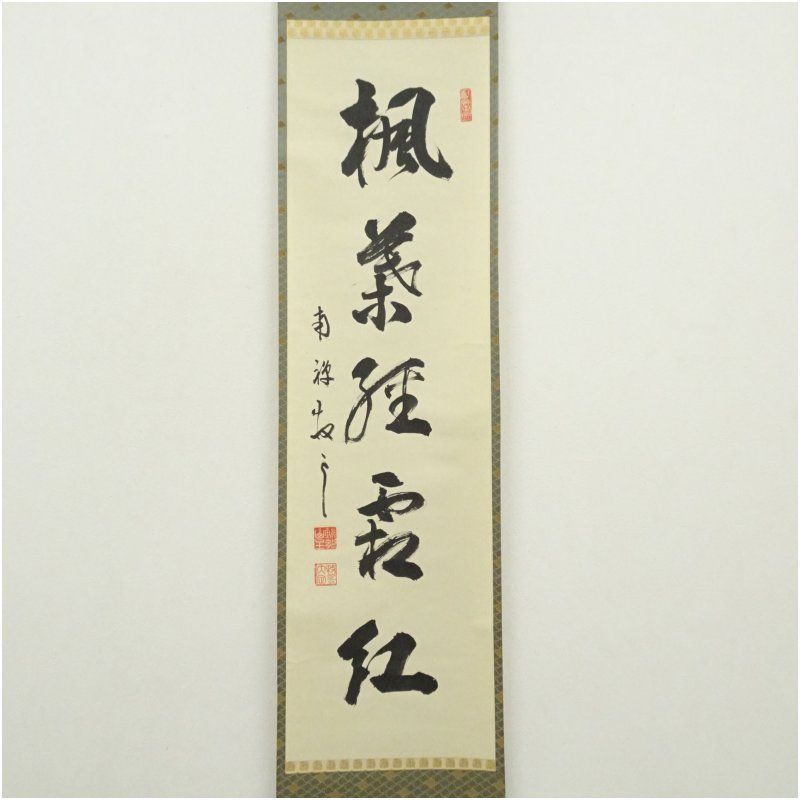 楓葉經霜紅
南禅